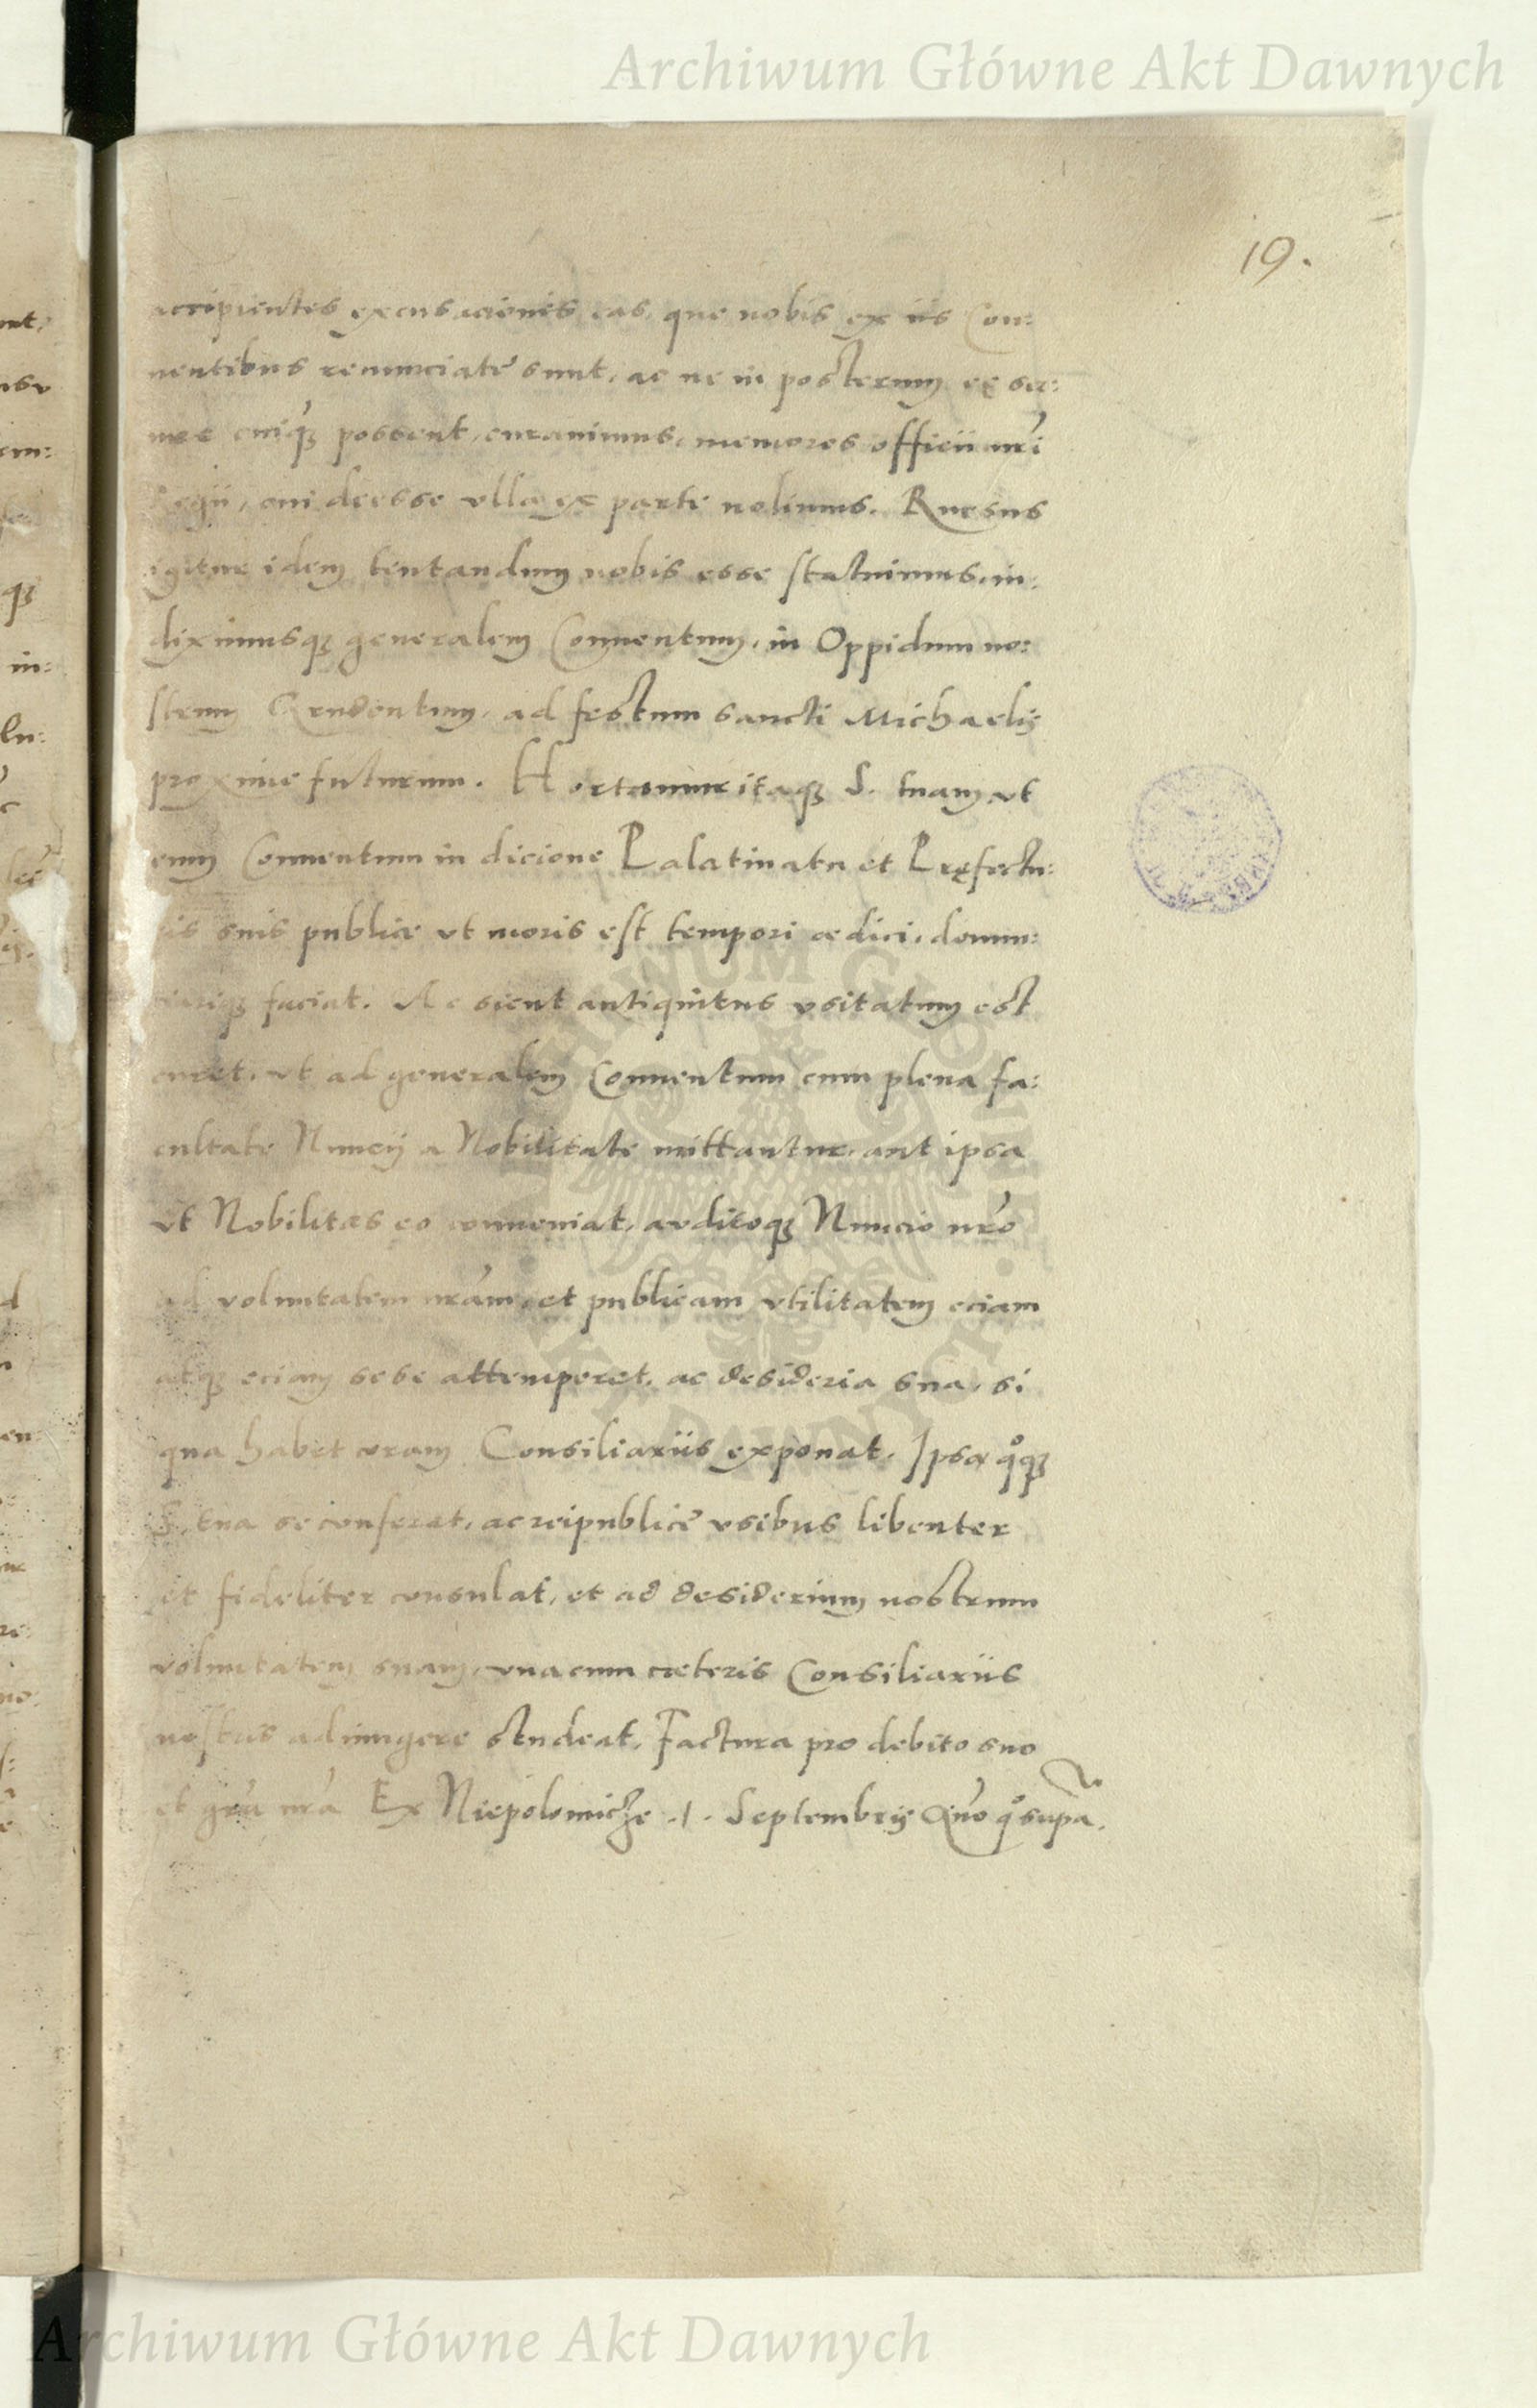 Archiwum Główne Akt Dawnych
19.
accipientes excusacionis eas, que nobis ex iis Con:
uentibus renunciate sunt, ac ne in posterum eę ser:
cuiq3 possent, curauimus, memores officii nr̃i
Regii, cui deesse vlla ex parte nolimus. Rursus
igitur idem tentandum nobis esse statuimus, in:
diximusq3 generalem Conuentum, in Oppidum no:
strum Grudentum, ad festum sancti Michaelis
proxime futurum. Hortamur itaq3 S. tuam vt
eum Conuentum in dicione Palatinatu et Pręfectu:
ris suis publice vt moris est tempori ędici, denun:
ciariq3 faciat. Ac sicut antiquitus vsitatum est
curet, vt ad generalem Conuentum cum plena fa:
cultate Nuncij a Nobilitate mittantur, aut ipsa
vt Nobilitas eo conueniat, auditoq3 Nuncio nr̃o
ad voluntatem nr̃am, et publicam vtilitatem eciam
atq3 eciam sese attemperet, ac desideria sua, si
qua habet coram Consiliariis exponat. Ipsa q°q3
S. tua se conferat, ac reipublice vsibus libenter
et fideliter consulat, et ad desiderium nostrum
voluntatem suam, vna cum cæteris Consiliariis
nostris adiungere studeat. Factura pro debito suo
et gr̃a nr̃a Ex Niepolomicze .1. Septembris Año q°supa.
Archiwum Główne Akt Dawnych